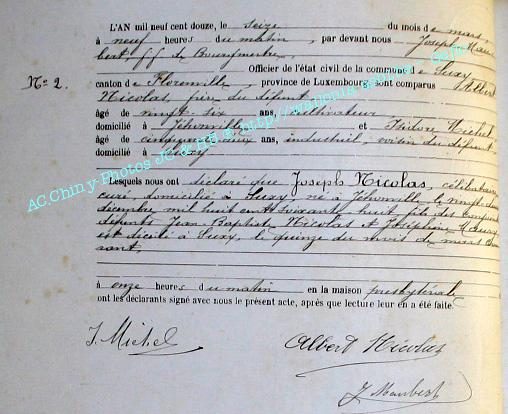 L'AN mil neuf cent douze, le seize du mois de mars
à neuf heures du matin, par devant nous Joseph Mau-
bert, ff de Bourgmestre,
Officier de l'état civil de la commune de Suxy
No 2. canton de Florenville province de Luxembourg sont comparus Albert
Nicolas, frère du défunt
âgé de vingt six ans, cultivateur
domicilié à Jéhonville et Isidore Michel
âgé de cinquante ans, industriel, voisin du défunt
domicilié à Suxy
Lesquels nous ont déclaré que Joseph Nicolas, célibataire
curé, domicilié à Suxy, né à Jéhonville le vingt
décembre mil huit cent soixante huit, fils des
défunts Jean Baptiste Nicolas et Joséphine
est décédé à Suxy, le quinze du mois de mars cou-
rant,
à onze heures du matin en la maison presbytérale
ont les déclarants signé avec nous le présent acte, après que lecture leur en a été faite.
J. Michel
Albert Nicolas
J. Maubert
AC.Chiny-Photos JC & RB © http://wallonia